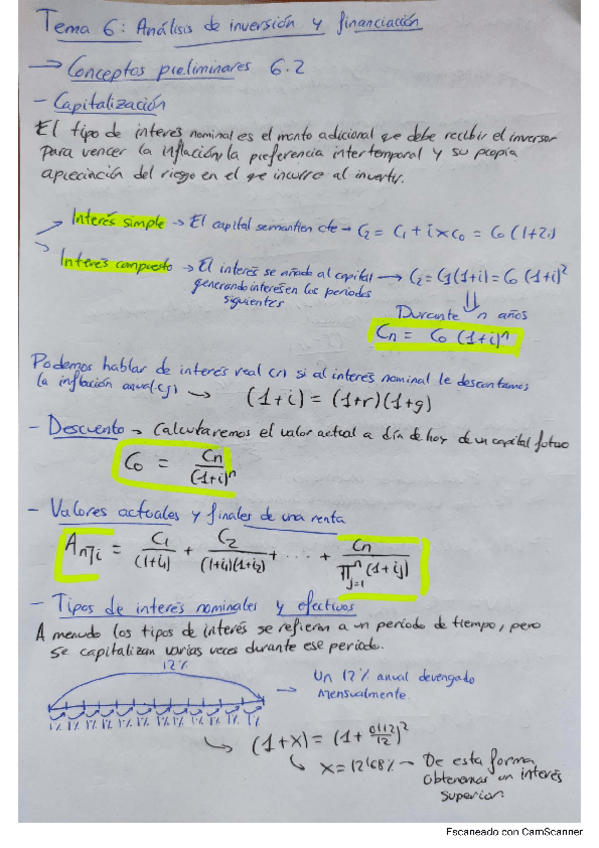 Tema 6: Análisis de inversión y financiación
→ Conceptos preliminares 6.2
- Capitalización
El tipo de interés nominal es el monto adicional que debe recibir el inversor
para vencer la inflación, la preferencia intertemporal y su propia
apreciación del riesgo en el que incurre al invertir.
→ Interés simple → El capital se mantien cte → C₂ = C₁ + i x C₀ = C₀ (1+2i)
→ Interés compuesto → El interés se añade al capital → C₂ = C₁(1+i) = C₀ (1+i)²
generando interés en los períodos
siguientes
Durante n años
Cn = C₀ (1+i)ⁿ
Podemos hablar de interés real (r) si al interés nominal le descontamos
la inflación anual (g) → (1+i) = (1+r)(1+g)
- Descuento → Calcularemos el valor actual a día de hoy de un capital futuro
C₀ = Cn / (1+i)ⁿ
- Valores actuales y finales de una renta
An⌉i = C₁ / (1+i₁) + C₂ / (1+i₁)(1+i₂) + ... + Cn / ∏ⁿj=1 (1+ij)
- Tipos de interés nominales y efectivos
A menudo los tipos de interés se refieren a un período de tiempo, pero
se capitalizan varias veces durante ese período.
12%
→ Un 12% anual devengado
mensualmente.
1% 1% 1% 1% 1% 1% 1% 1% 1% 1% 1% 1%
↳ (1+x) = (1 + 0'12/12)²
↳ x = 12'68% → De esta forma
obtenemos un interés
superior.
Escaneado con CamScanner